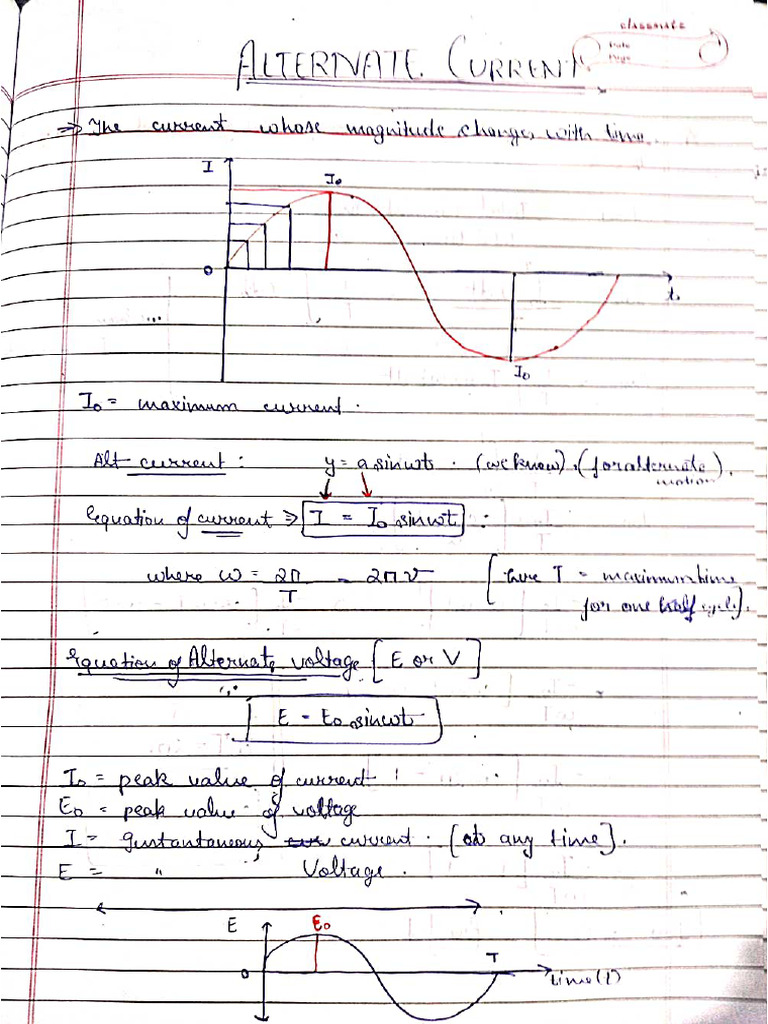 classmate
Date
Page
ALTERNATE CURRENT
⇒ The current whose magnitude changes with time.
I
I₀
0
t
I₀
I₀ = maximum current.
Alt current : y = a sinωt . (we know), (for alternate
motion).
Equation of current ⇒ I = I₀ sinωt :
where ω = 2π/T = 2πν [here T = maximum time
for one half cycle].
Equation of Alternate voltage [E or V]
E = E₀ sinωt
I₀ = peak value of current
E₀ = peak value of voltage
I = Instantaneous current. [at any time].
E = " Voltage.
E
E₀
0
T
time(t)